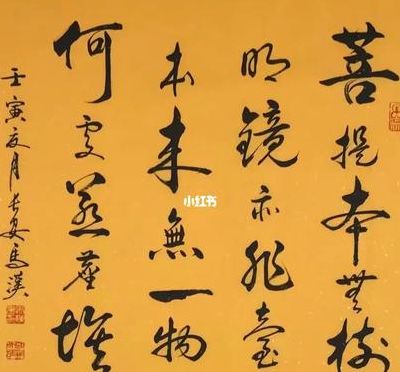 菩提本無樹
明鏡亦非臺
本来無一物
何處惹塵埃
壬寅夏月长安馬漢
小红书